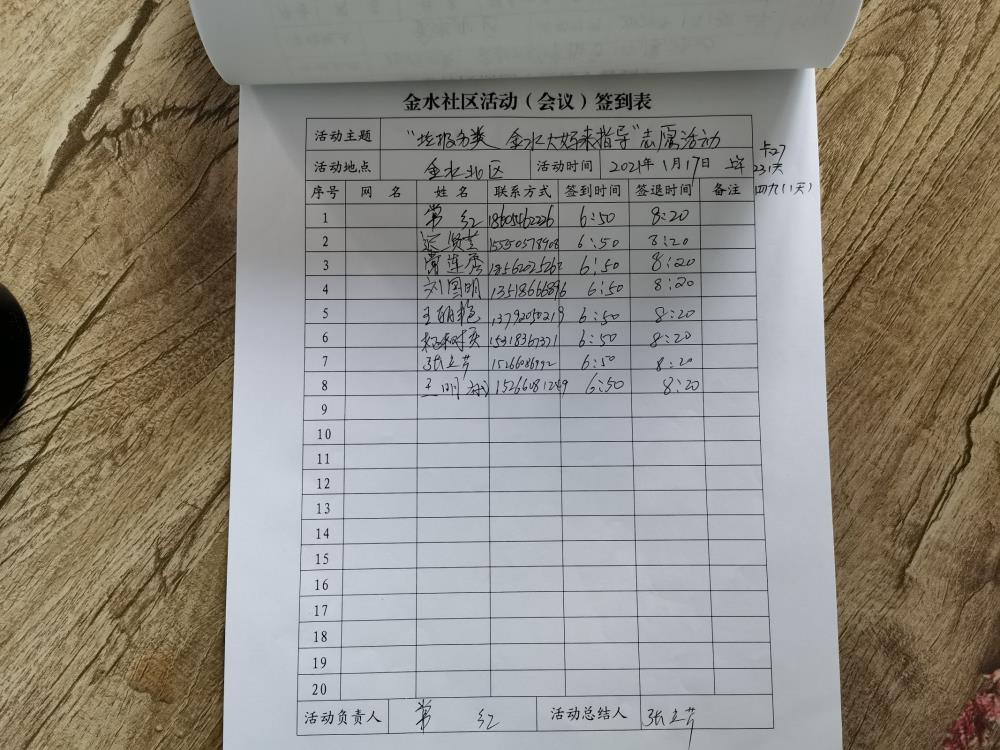 金水社区活动（会议）签到表
活动主题 "垃圾分类 金水大妈来指导"志愿活动
活动地点 金水北区 活动时间 2021年1月17日
231天
四九(1天)
序号 网 名 姓 名 联系方式 签到时间 签退时间 备注
1 常红 6:50 8:20
2 15550578908 6:50 8:20
3 6:50 8:20
4 刘国明 6:50 8:20
5 13792050219 6:50 8:20
6 15318367321 6:50 8:20
7 张立芹 15266086992 6:50 8:20
8 王明 6:50 8:20
9
10
11
12
13
14
15
16
17
18
19
20
活动负责人 常红 活动总结人 张立芹